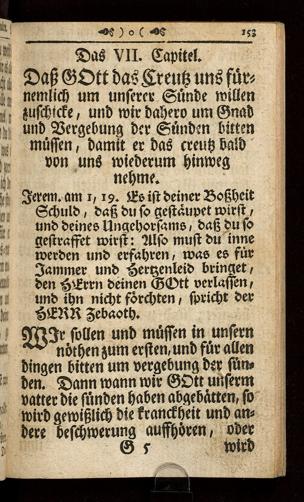 ☙ ) o ( ❧ 153
Das VII. Capitel.
Daß GOtt das Creutz uns für-
nemlich um unserer Sünde willen
zuschicke, und wir dahero um Gnad
und Vergebung der Sünden bitten
müssen, damit er das creutz bald
von uns wiederum hinweg
nehme.
Jerem. am 1, 19. Es ist deiner Boßheit
Schuld, daß du so gestäupet wirst,
und deines Ungehorsams, daß du so
gestraffet wirst: Also must du inne
werden und erfahren, was es für
Jammer und Hertzenleid bringet,
den HErrn deinen GOtt verlassen,
und ihn nicht förchten, spricht der
HERR Zebaoth.
WIr sollen und müssen in unsern
nöthen zum ersten, und für allen
dingen bitten um vergebung der sün-
den. Dann wann wir GOtt unserm
vatter die sünden haben abgebätten, so
wird gewißlich die kranckheit und an-
dere beschwerung auffhören, oder
G 5 wird